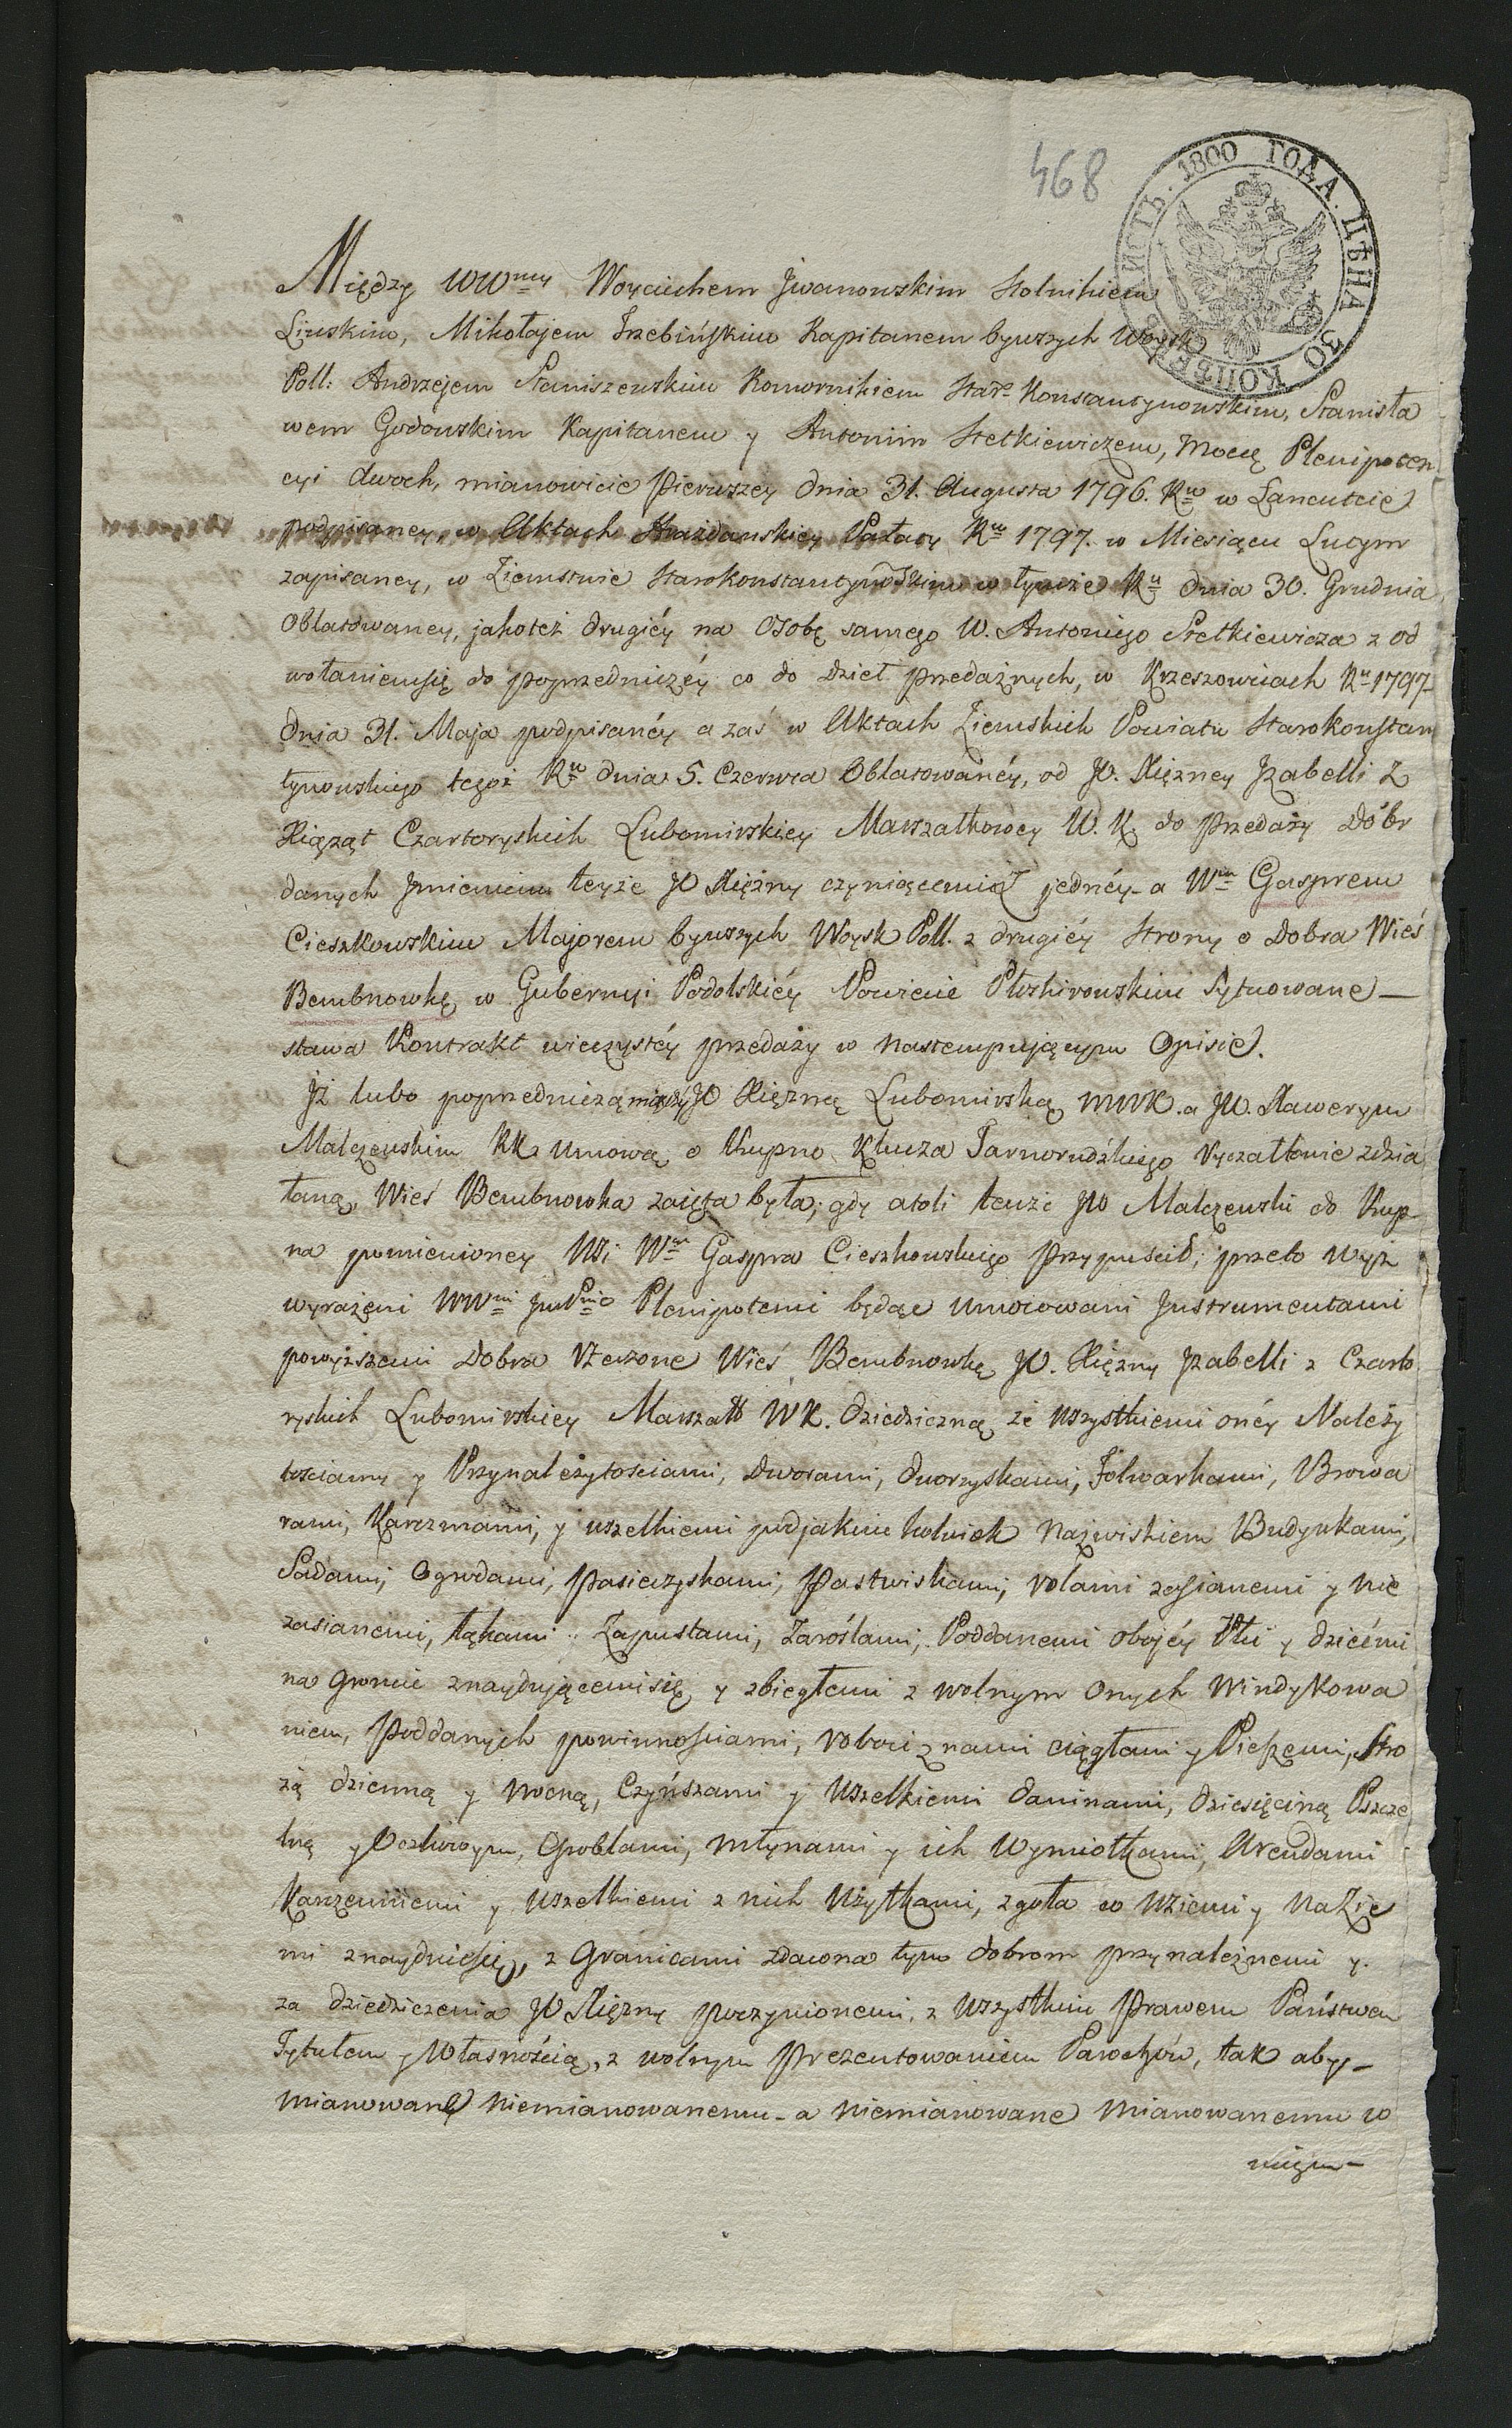 468
ИСТЬ. 1800 ГОДА. ЦѢНА 30 КОПѢЕКЪ
Między WW<sup>nmy</sup> Woyciechem Jwanowskim Stolnikiem
Liwskim, Mikołajem Trzebińskim Kapitanem bywszych Woysk
Poll: Andrzejem Staniszewskim Komornikiem Star° Konstantynowskim, Stanisła
wem Godowskim Kapitanem y Antonim Stetkiewiczem, mocą Plenipoten
cyi dwoch, mianowicie Pierwszey dnia 31. Augusta 1796. R<sup>u</sup> w Lancucie
podpisaney, w Aktach Grażdanskiey Pałaty R<sup>u</sup> 1797. w Miesiącu Lutym
zapisaney, w Ziemstwie Starokonstantynowskim w tymże R<sup>u</sup> dnia 30. Grudnia
Oblatowaney, jakoteż drugiéy na Osobę samego W. Antoniego Stetkiewicza z od
wołaniemsię do poprzedniczéy co do Dzieł przedażnych, w Krzeszowicach R<sup>u</sup> 1797
dnia 31. Maja podpisanéy a zaś w Aktach Ziemskich Powiatu Starokonstan
tynowskiego tegoż R<sup>u</sup> dnia 5. Czerwca Oblatowanéy, od JO. Xiężney Jzabelli z
Xiążąt Czartoryskich Lubomirskiey Marszałkowey W. K. do przedaży Dóbr
danych Jmieniem teyże JO Xiężny czyniącemi z jednéy a W<sup>m</sup> Gasprem
Cieszkowskim Majorem bywszych Woysk Poll. z drugiéy Strony o Dobra Wieś
Bembnowkę w Gubernyi Podolskiéy Powiecie Płoskirowskim Sytuowane —
stawa Kontrakt wieczystéy przedaży w nastempującym Opisie.
Jż lubo poprzedniczą między JO Xiężną Lubomirską MWK. a JW. Xawerym
Malczewskim KK umową o Kupno Klucza Tarnorudzkiego ryczałtowie zdzia
łaną, Wieś Bembnowka zaięta była; gdy atoli tenże JW Malczewski do Kup-
na pomienioney Wsi W<sup>o</sup> Gaspra Cieszkowskiego przypuścił; przeto wyż
wyrażeni WW<sup>ni</sup> Plenipotenci będąc umocowani Jnstrumentami
powyższemi Dobra rzeczone Wieś Bembnowkę JO. Xiężny Jzabelli z Czarto
ryskich Lubomirskiey Marszałł WK. dziedziczną ze wszystkiemi onéy Należy
tościamy y Przynależytościami, dworami, dworzyskami, Folwarkami, Browa
rami, Karczmami, y wszelkiemi podjakim kolwiek nazwiskiem Budynkami,
Sadami, Ogrodami, Pasieczyskami, Pastwiskami, rolami zasianemi y nie
zasianemi, łąkami, Zapustami, Zaroślami, Poddanemi obojéy Płci y dziećmi
na gruncie znaydującemisię y zbiegłemi z wolnym Onych Windykowa
niem, Poddanych powinnościami, robociznami ciągłemi y Pieszemi, Stro
żą dzienną y nocną, Czynszami y wszelkiemi daninami, dziesięciną Pszcze
lną y Oczkowym, Groblami, młynami y ich Wymiołkami, Arendami
Karczemnemi y wszelkiemi z nich Użytkami, zgoła co wziemi y na Zie
mi znayduiesię, z Granicami zdawna tym dobrom przynależnemi y
za dziedziczenia JO Xiężny poczynionemi, z wszystkim Prawem Państwem
Tytułem y Własnością, z wolnym Prezentowaniem Parochów, tak aby —
mianowane niemianowanemu — a niemianowane mianowanemu w
niczym —